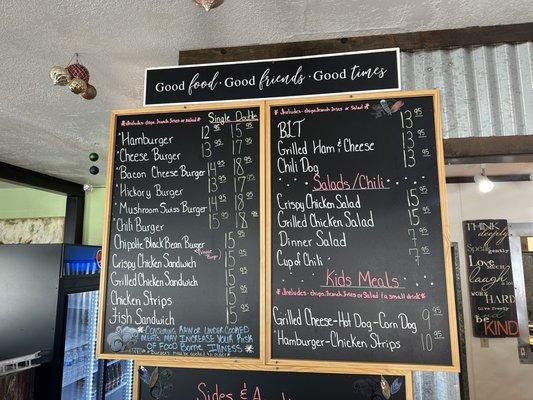 Good food · Good friends · Good times
*Includes-chips, French Fries or Salad*
Single Double
Hamburger 12.95 15.95
Cheese Burger 13.95
Bacon Cheese Burger 14.95 18.95
Hickory Burger
Mushroom Swiss Burger 14.95 18.95
Chili Burger 15.95 18.95
Chipotle Black Bean Burger 15.95
(Veggie Burger)
Crispy Chicken Sandwich 15.95
Grilled Chicken Sandwich 15.95
Chicken Strips 15.95
Fish Sandwich 15.95
*Consuming Raw or Under Cooked
meats may increase your risk
of Food Borne Illness*
*Includes-chips, French Fries or Salad*
BLT 13.95
Grilled Ham & Cheese 13.95
Chili Dog 13.95
Salads/Chili
Crispy Chicken Salad 15.95
Grilled Chicken Salad 15.95
Dinner Salad 7.95
Cup of Chili 7.95
Kids Meals
*Includes-chips, French Fries or Salad & a small drink
Grilled Cheese-Hot Dog-Corn Dog 9.95
Hamburger-Chicken Strips 10.95
Sides &
THINK
deeply
SPEAK
Love
laugh
Work
HARD
Give freely
& be
KIND